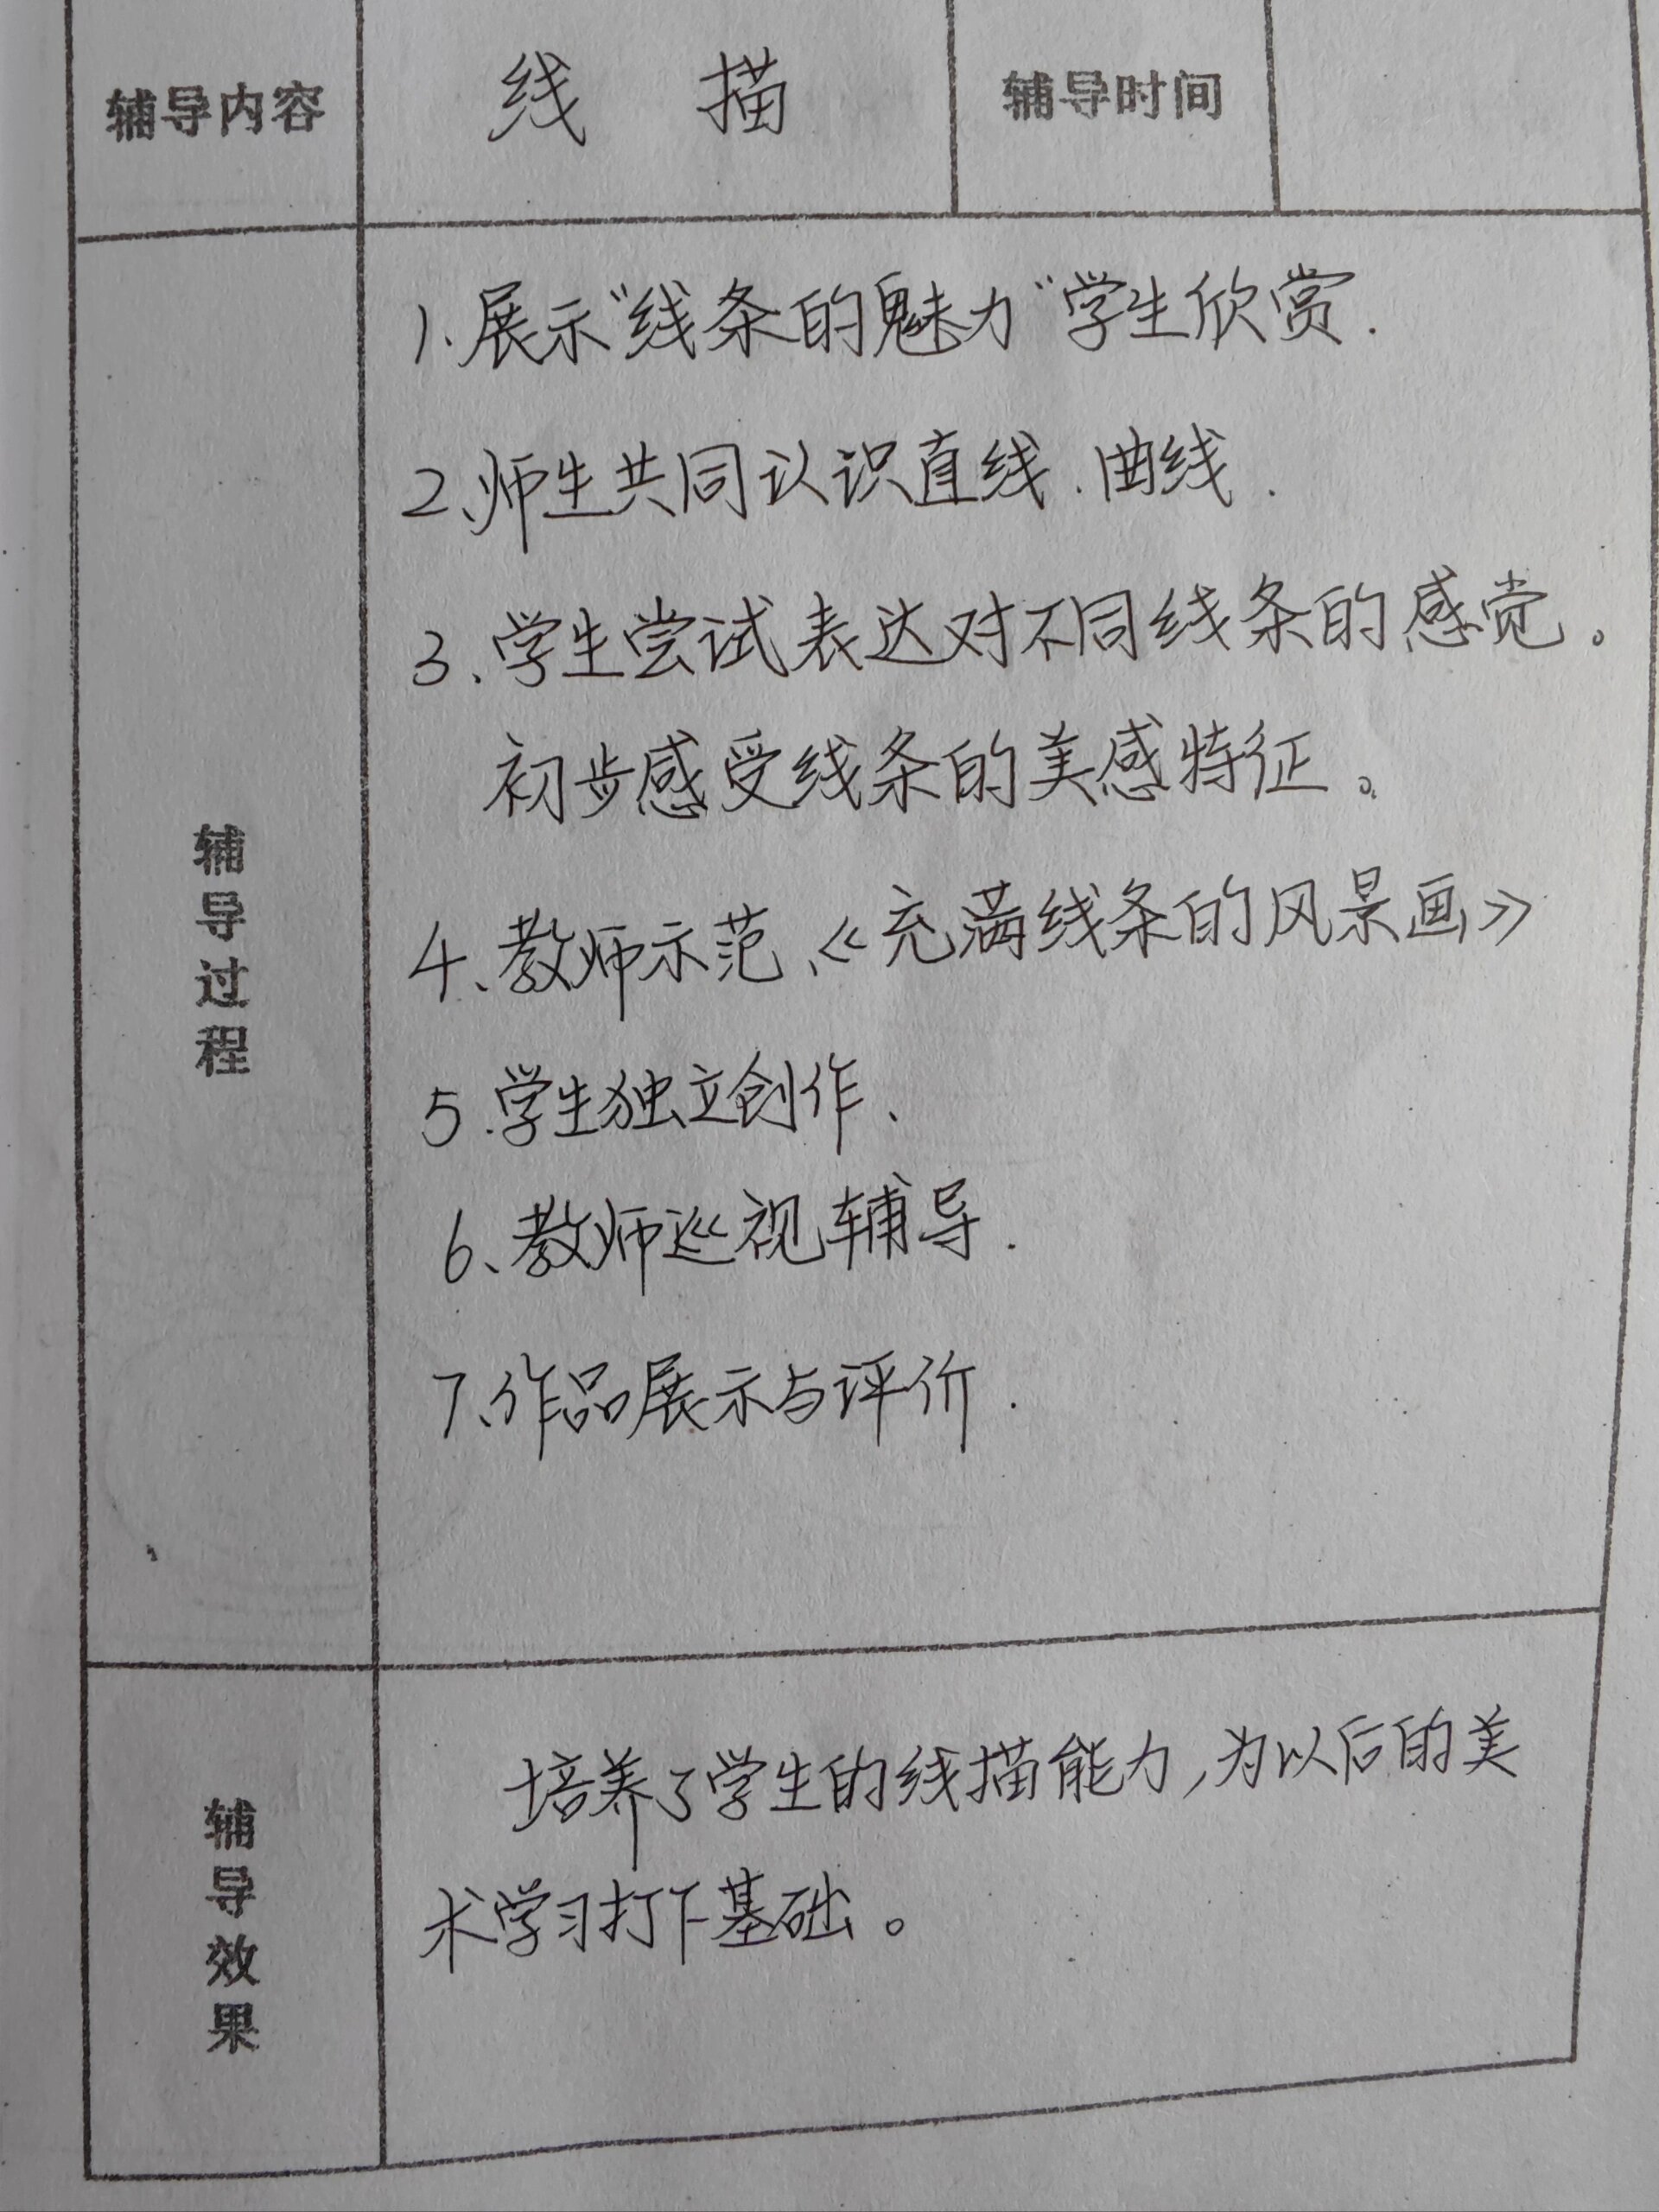 辅导内容 线描 辅导时间
1、展示“线条的魅力”学生欣赏.
2、师生共同认识直线.曲线.
3、学生尝试表达对不同线条的感觉。
初步感受线条的美感特征。
4、教师示范、《充满线条的风景画》
5.学生独立创作、
6、教师巡视辅导.
7、作品展示与评价.
辅导过程
培养了学生的线描能力,为以后的美
术学习打下基础。
辅导效果